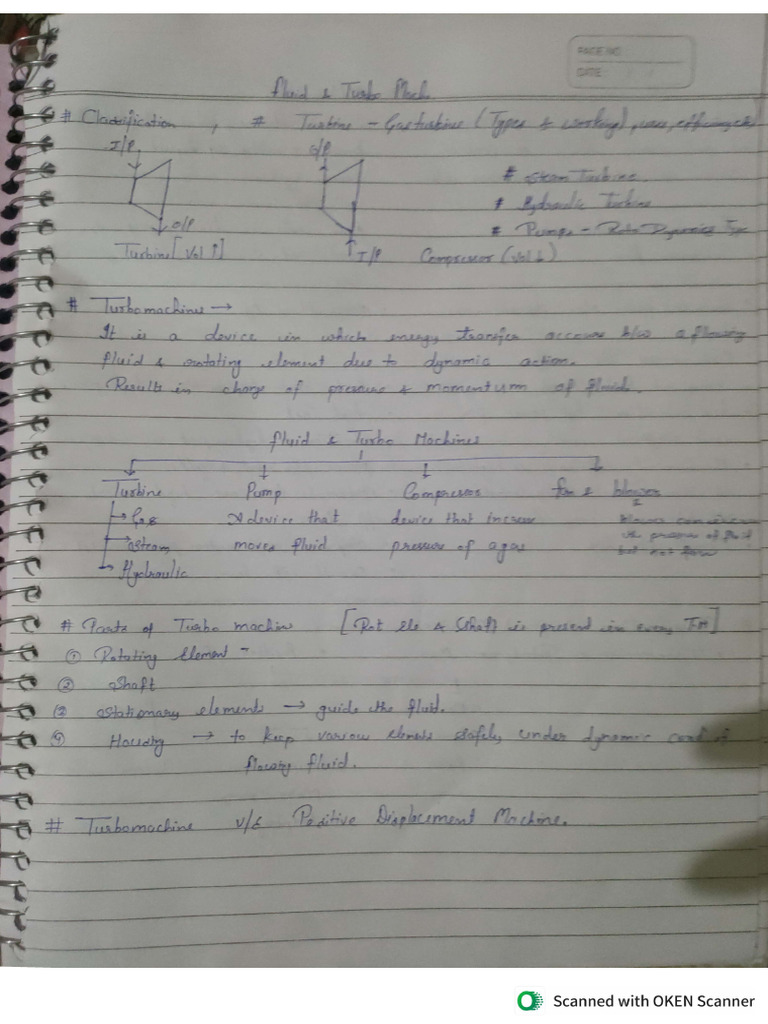 PAGE NO
DATE
Fluid & Turbo Mach.
# Classification , # Turbine - Gas turbine (Types & working), uses, efficiency
I/P O/P
# Steam Turbine
# Hydraulic Turbine
O/P # Pumps - Roto Dynamic Type
Turbine [Vol ↑] I/P Compressor (Vol ↓)
# Turbomachines →
It is a device in which energy transfer accours b/w a flowing
fluid & rotating element due to dynamic action.
Results in change of pressure & momentum of fluid.
Fluid & Turbo Machines
Turbine Pump Compressor fan & blower
→ Gas A device that device that Increase blower can increase
→ Steam moves fluid pressure of a gas the pressure of fluid
→ Hydraulic but not flow
# Parts of Turbo machine [Rot ele & Shaft is present in every TM]
① Rotating Element -
② Shaft
③ Stationary elements → guide the fluid.
④ Housing → to keep various elements safely under dynamic cond of
flowing fluid.
# Turbomachine v/s Positive Displacement Machine.
Scanned with OKEN Scanner